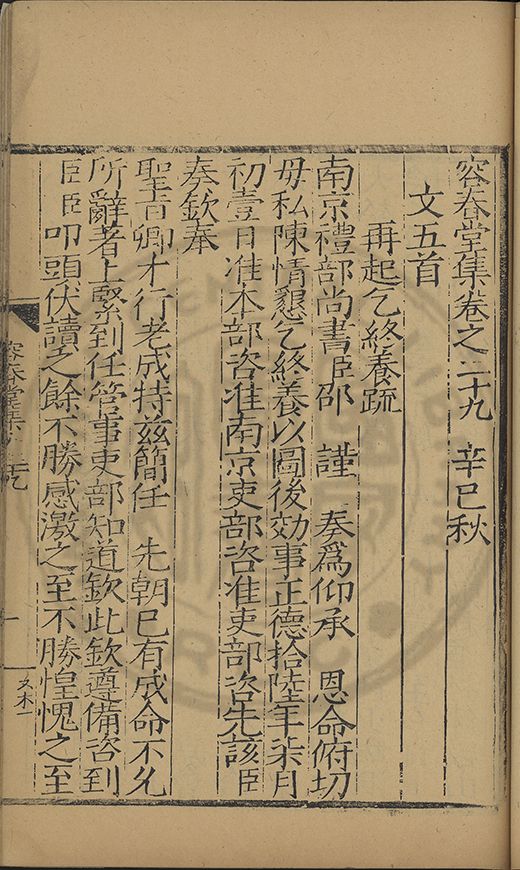 容春堂集卷之二十九 辛巳秋
文五首
再起乞終養疏
南京禮部尚書臣邵 謹 奏爲仰承 恩命俯切
毋私陳情懇乞終養以圖後効事正德拾陸年柒月
初壹日准本部咨准南京吏部咨准吏部咨先該臣
奏欽奉
聖旨卿才行老成持兹簡任 先朝巳有成命不允
所辭著上緊到任管事吏部知道欽此欽遵備咨到
臣臣 叩頭伏讀之餘不勝感激之至不勝惶愧之至
容春堂集
一